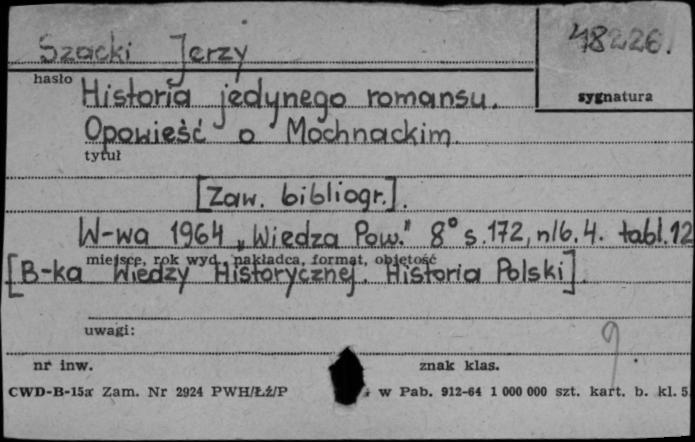 Szacki Jerzy
48226.
hasło
sygnatura
Historia jedynego romansu.
Opowieść o Mochnackim.
tytuł
[Zaw. bibliogr.].
W-wa 1964 „Wiedza Pow." 8° s. 172, nlb. 4. tabl. 12
miejsce, rok wyd., nakładca, format, objętość
[B-ka Wiedzy Historycznej. Historia Polski].
uwagi:
9
nr inw.
znak klas.
CWD-B-15a Zam. Nr 2924 PWH/Łź/P w Pab. 912-64 1 000 000 szt. kart. b. kl. 5